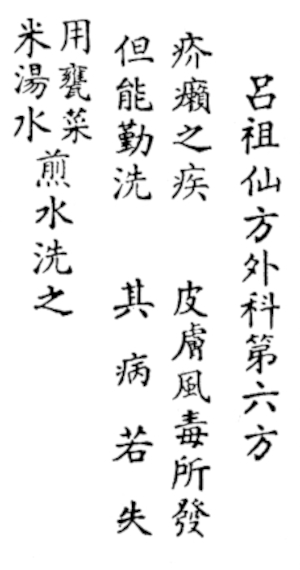 呂祖仙方外科第六方
疥癩之疾 皮膚風毒所發
但能勤洗 其病若失
用蕹菜
米湯水
煎水洗之